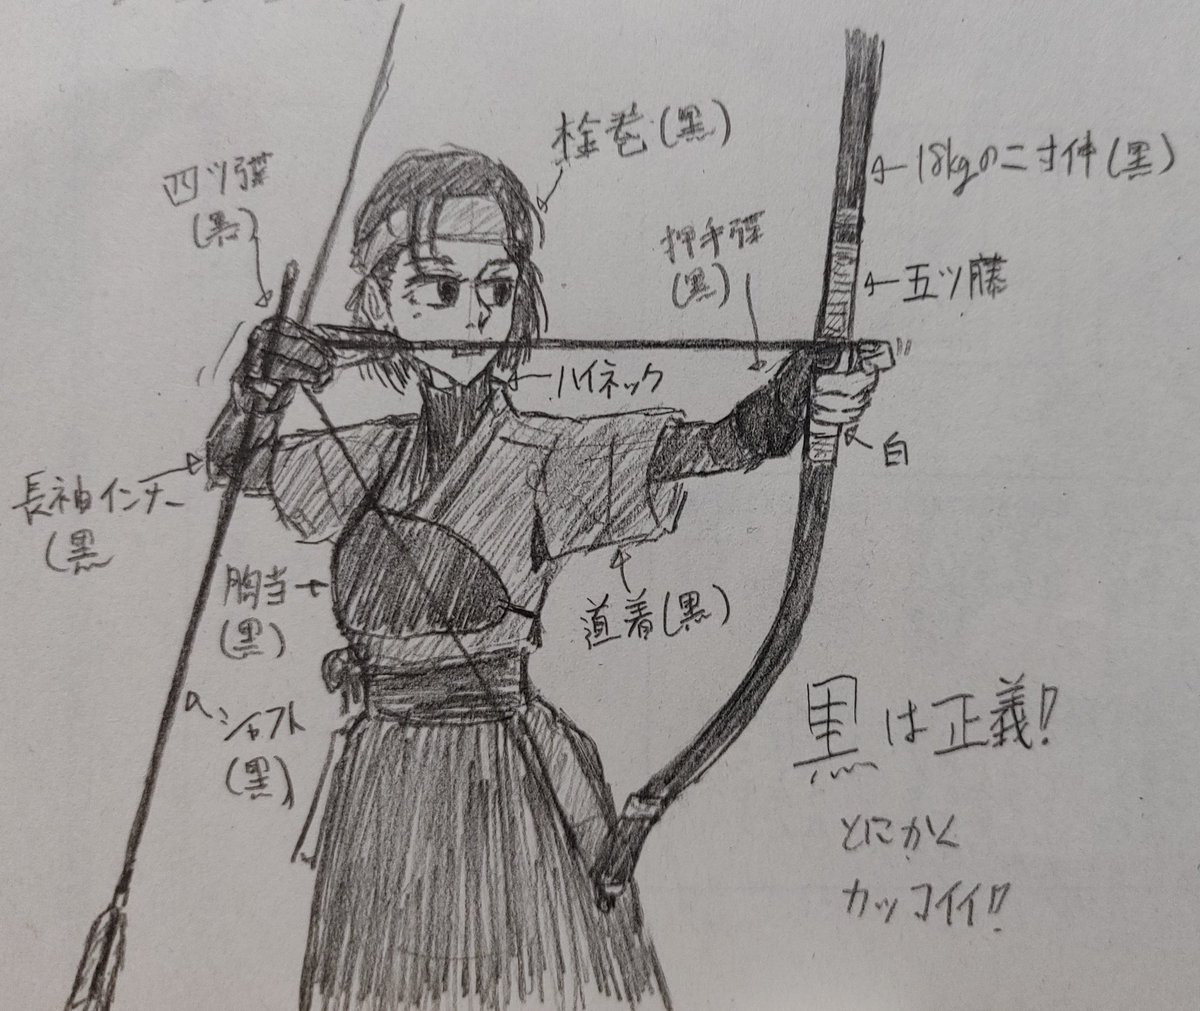 栓巻(黒)
四ツ弽
(黒)
←18kgの二寸伸(黒)
押手弽
(黒)
←五ツ藤
←ハイネック
白
長袖インナー
(黒
胸当→
(黒)
道着(黒)
シャフト
(黒)
黒は正義!
とにかく
カッコイイ!!